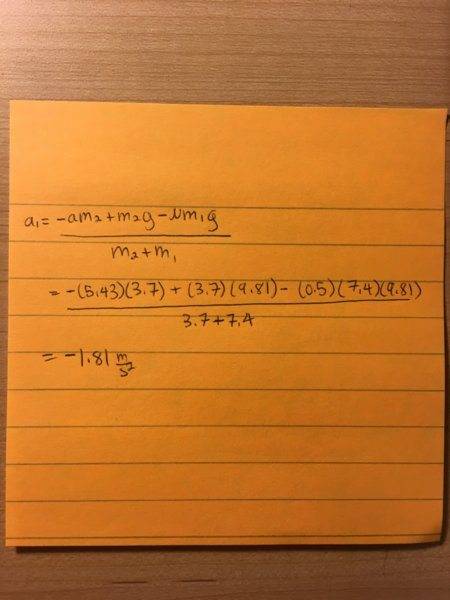 a₁ = -am₂+m₂g-μm₁g
m₂+m₁
= -(5.43)(3.7)+(3.7)(9.81)-(0.5)(7.4)(9.81)
3.7+7.4
= -1.81 m/s²